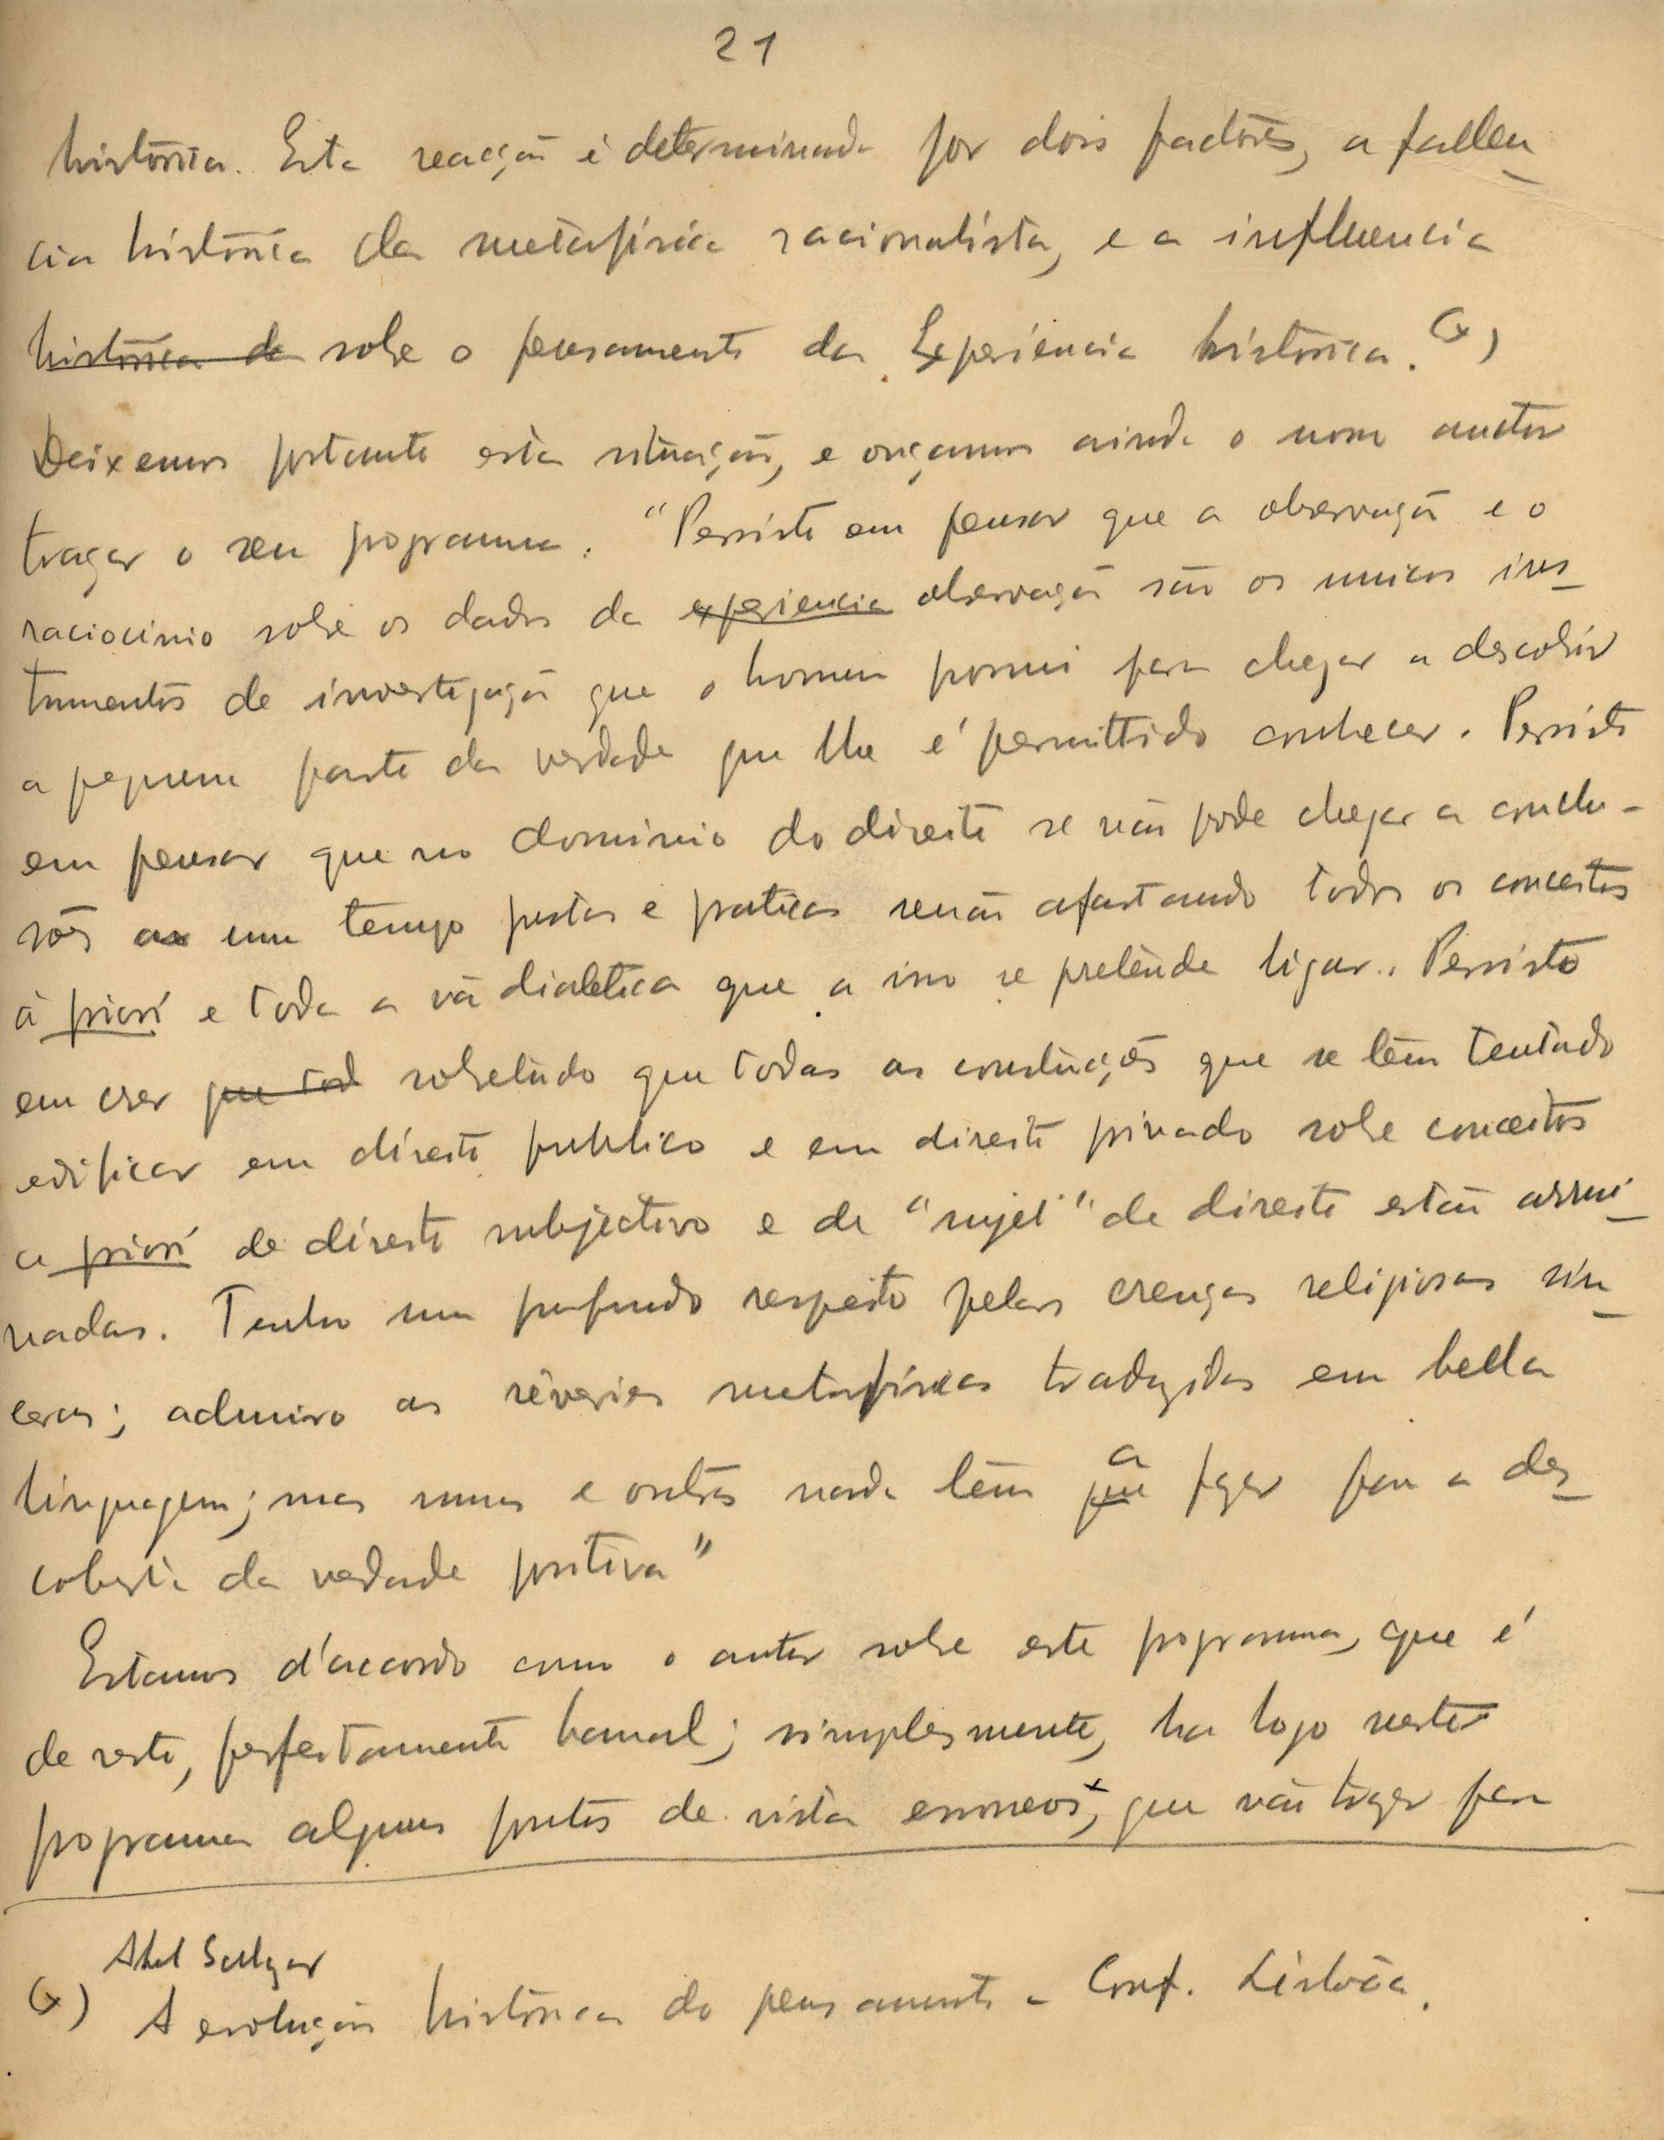 21
história. Esta reacção é determinada por dois factores, a fallen
cia história da metafísica racionalista, e a influencia
histórica de sobre o pensamento da Experiencia historica. (x)
Deixemos portanto esta situação, e ouçamos ainda o nosso auctor
traçar o seu programma. "Persisto em pensar que a observação e o
raciocinio sobre os dados da experiencia observação são os unicos ins
trumentos de investigação que o homem possui para chegar a descobrir
a pequena parte da verdade que lhe é permittido conhecer. Persisto
em pensar que no dominio do direito se não pode chegar a conclu-
sões ao um tempo justas e praticas senão afastando todos os conceitos
à priori e toda a vã dialetica que a isso se pretende ligar. Persisto
em crer que tod sobretudo que todas as construcções que se têm tentado
edificar em direito publico e em direito privado sobre conceitos
a priori de direito subjectivo e de "sujet" de direito estão arrui
nadas. Tenho um profundo respeito pelas crenças religiosas sin
ceras; admiro as rêveries metafísicas traduzidas em bella
linguagem; mas umas e outras nada têm que a fazer para a des
coberta da verdade positiva"
Estamos d'accordo com o autor sobre este programma, que é
de resto, perfeitamente banal; simplesmente, ha logo neste
programma alguns pontos de vista erroneos, que vão trazer para
Abel Salazar
(x) A evolução histórica do pensamento - Conf. Lisbôa.